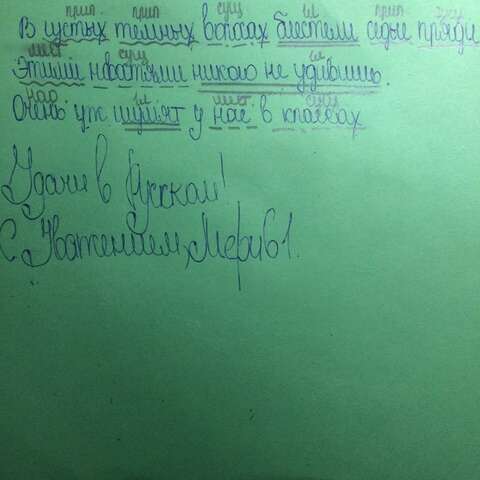 прил прил сущ гл прил сущ
В густых темных волосах блестели седые пряди
мест сущ гл
Этими новостями никого не удивишь.
нар гл мест сущ
Очень уж шумят у нас в классах
Удачи в Русском!
С Уважением, Мери61.